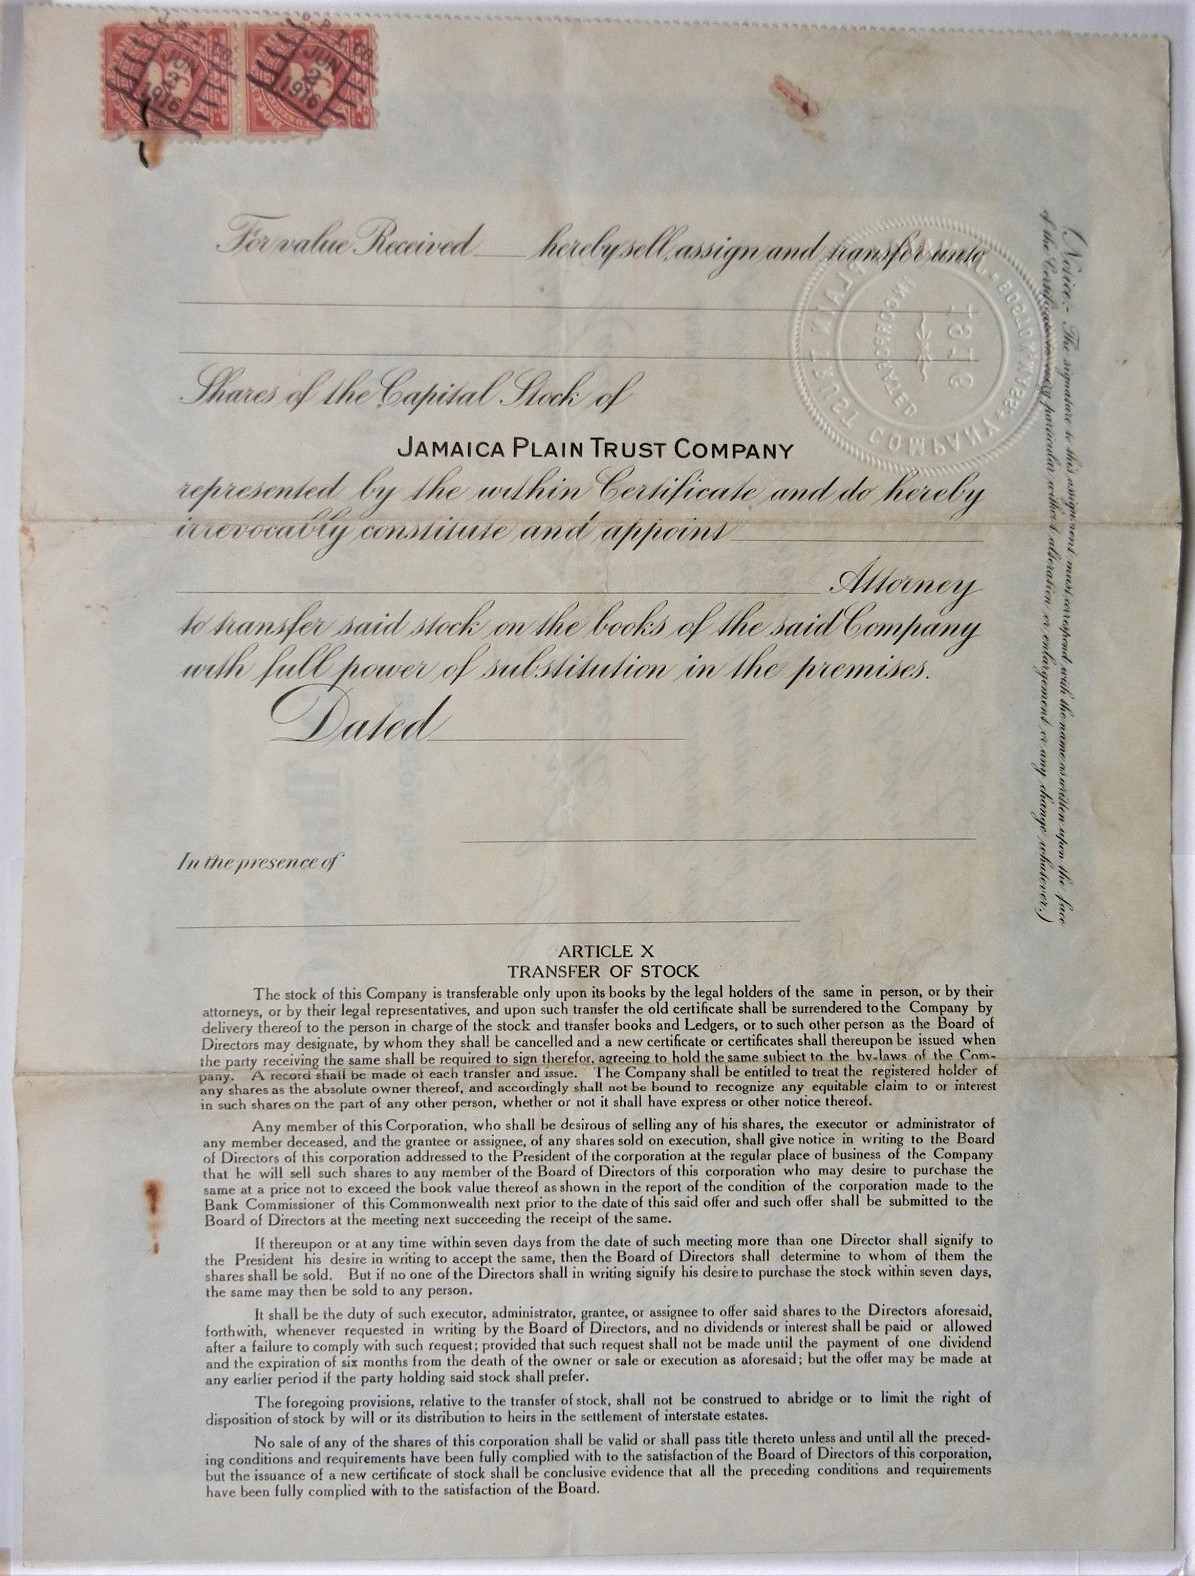 J. P. T. CO.
JUN
2
1916
J. P. T. CO.
JUN
2
1916
For value Received hereby sell, assign and transfer unto
Shares of the Capital Stock of
JAMAICA PLAIN TRUST COMPANY
represented by the within Certificate and do hereby
irrevocably constitute and appoint
Attorney
to transfer said stock on the books of the said Company
with full power of substitution in the premises.
Dated
In the presence of
(Notice:- The signature to this assignment must correspond with the name as written upon the face
of the Certificate in every particular without alteration or enlargement or any change whatever.)
JAMAICA PLAIN TRUST COMPANY
BOSTON, MASS.
INCORPORATED
1916
ARTICLE X
TRANSFER OF STOCK
The stock of this Company is transferable only upon its books by the legal holders of the same in person, or by their
attorneys, or by their legal representatives, and upon such transfer the old certificate shall be surrendered to the Company by
delivery thereof to the person in charge of the stock and transfer books and Ledgers, or to such other person as the Board of
Directors may designate, by whom they shall be cancelled and a new certificate or certificates shall thereupon be issued when
the party receiving the same shall be required to sign therefor, agreeing to hold the same subject to the by-laws of the Com-
pany. A record shall be made of each transfer and issue. The Company shall be entitled to treat the registered holder of
any shares as the absolute owner thereof, and accordingly shall not be bound to recognize any equitable claim to or interest
in such shares on the part of any other person, whether or not it shall have express or other notice thereof.
Any member of this Corporation, who shall be desirous of selling any of his shares, the executor or administrator of
any member deceased, and the grantee or assignee, of any shares sold on execution, shall give notice in writing to the Board
of Directors of this corporation addressed to the President of the corporation at the regular place of business of the Company
that he will sell such shares to any member of the Board of Directors of this corporation who may desire to purchase the
same at a price not to exceed the book value thereof as shown in the report of the condition of the corporation made to the
Bank Commissioner of this Commonwealth next prior to the date of this said offer and such offer shall be submitted to the
Board of Directors at the meeting next succeeding the receipt of the same.
If thereupon or at any time within seven days from the date of such meeting more than one Director shall signify to
the President his desire in writing to accept the same, then the Board of Directors shall determine to whom of them the
shares shall be sold. But if no one of the Directors shall in writing signify his desire to purchase the stock within seven days,
the same may then be sold to any person.
It shall be the duty of such executor, administrator, grantee, or assignee to offer said shares to the Directors aforesaid,
forthwith, whenever requested in writing by the Board of Directors, and no dividends or interest shall be paid or allowed
after a failure to comply with such request; provided that such request shall not be made until the payment of one dividend
and the expiration of six months from the death of the owner or sale or execution as aforesaid; but the offer may be made at
any earlier period if the party holding said stock shall prefer.
The foregoing provisions, relative to the transfer of stock, shall not be construed to abridge or to limit the right of
disposition of stock by will or its distribution to heirs in the settlement of interstate estates.
No sale of any of the shares of this corporation shall be valid or shall pass title thereto unless and until all the preced-
ing conditions and requirements have been fully complied with to the satisfaction of the Board of Directors of this corporation,
but the issuance of a new certificate of stock shall be conclusive evidence that all the preceding conditions and requirements
have been fully complied with to the satisfaction of the Board.